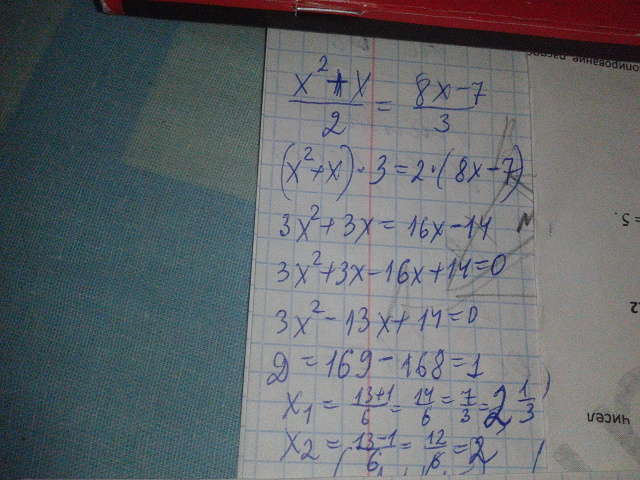 x² + x / 2 = 8x - 7 / 3
(x² + x) · 3 = 2 · (8x - 7)
3x² + 3x = 16x - 14
3x² + 3x - 16x + 14 = 0
3x² - 13x + 14 = 0
D = 169 - 168 = 1
x₁ = 13+1 / 6 = 14 / 6 = 7 / 3 = 2 1/3
x₂ = 13-1 / 6 = 12 / 6 = 2
= 5.
2
чисел